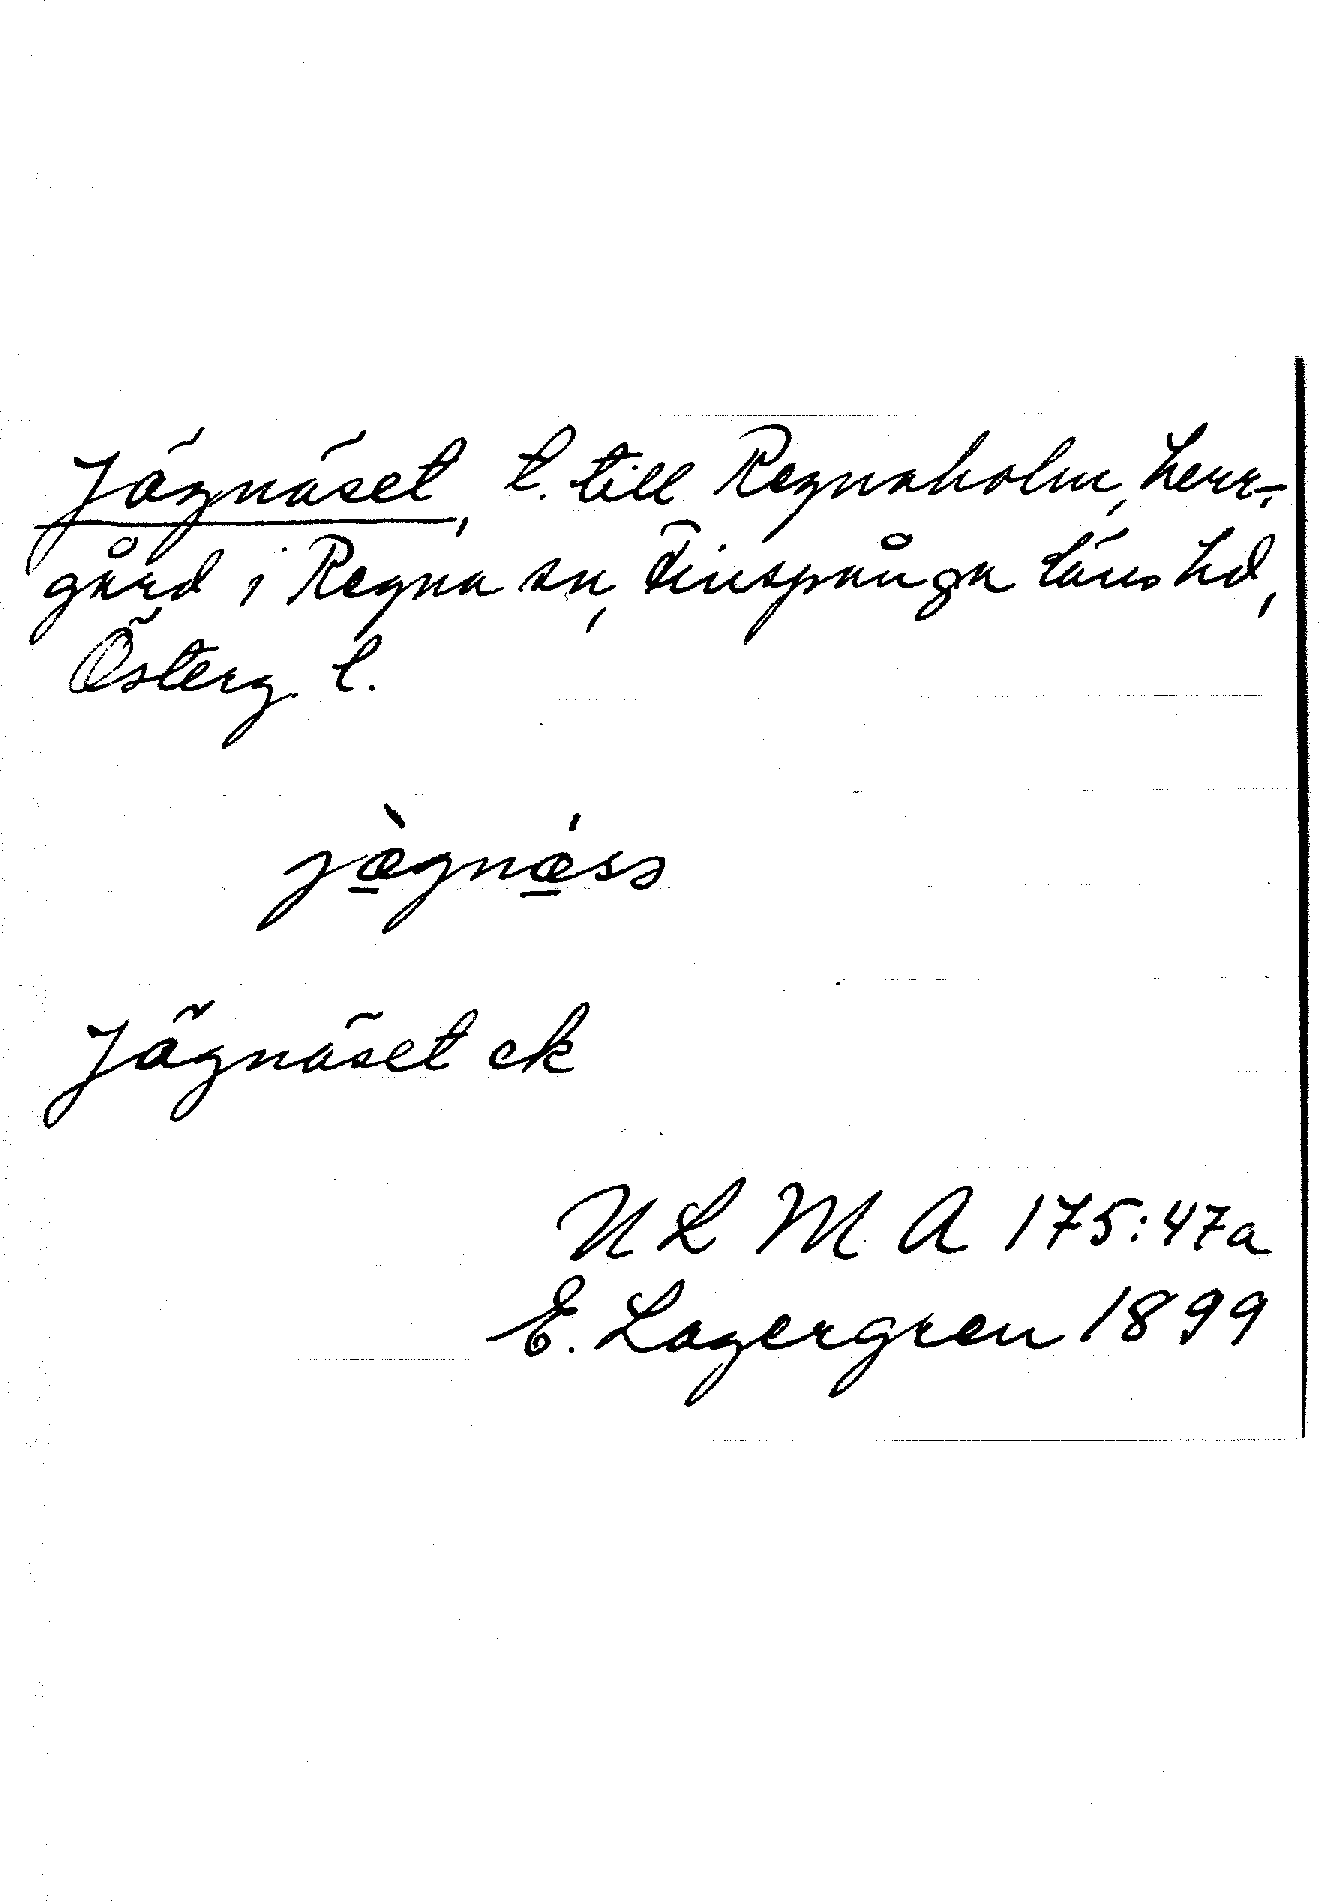 Jägnäset, t. till Regnaholm, herr-
gård i Regna sn, Finspånga läns hd,
Österg. l.
jæ̱̀gnǽ̱ss
Jägnäset ek
N L M A 175:47a
E. Lagergren 1899